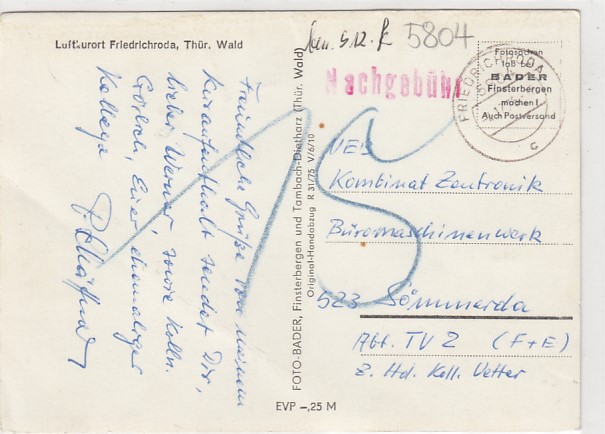 Luftkurort Friedrichroda, Thür. Wald
5804
Nachgebühr
Fotosachen
laß bei
BADER
Finsterbergen
machen!
Auch Postversand
FRIEDRICHRODA
c
Freundliche Grüße von meinem
Kuraufenthalt sendet Dir,
lieber Werner, sowie Kolln.
Görlach, Euer ehemaliger
Kollege
P. Schäffner
FOTO-BADER, Finsterbergen und Tambach-Dietharz (Thür. Wald)
Original-Handabzug R 31/75 V/6/10
15
VEB
Kombinat Zentronik
Büromaschinenwerk
523 Sömmerda
Abt. TV 2 (F+E)
z. Hd. Koll. Vetter
EVP –,25 M